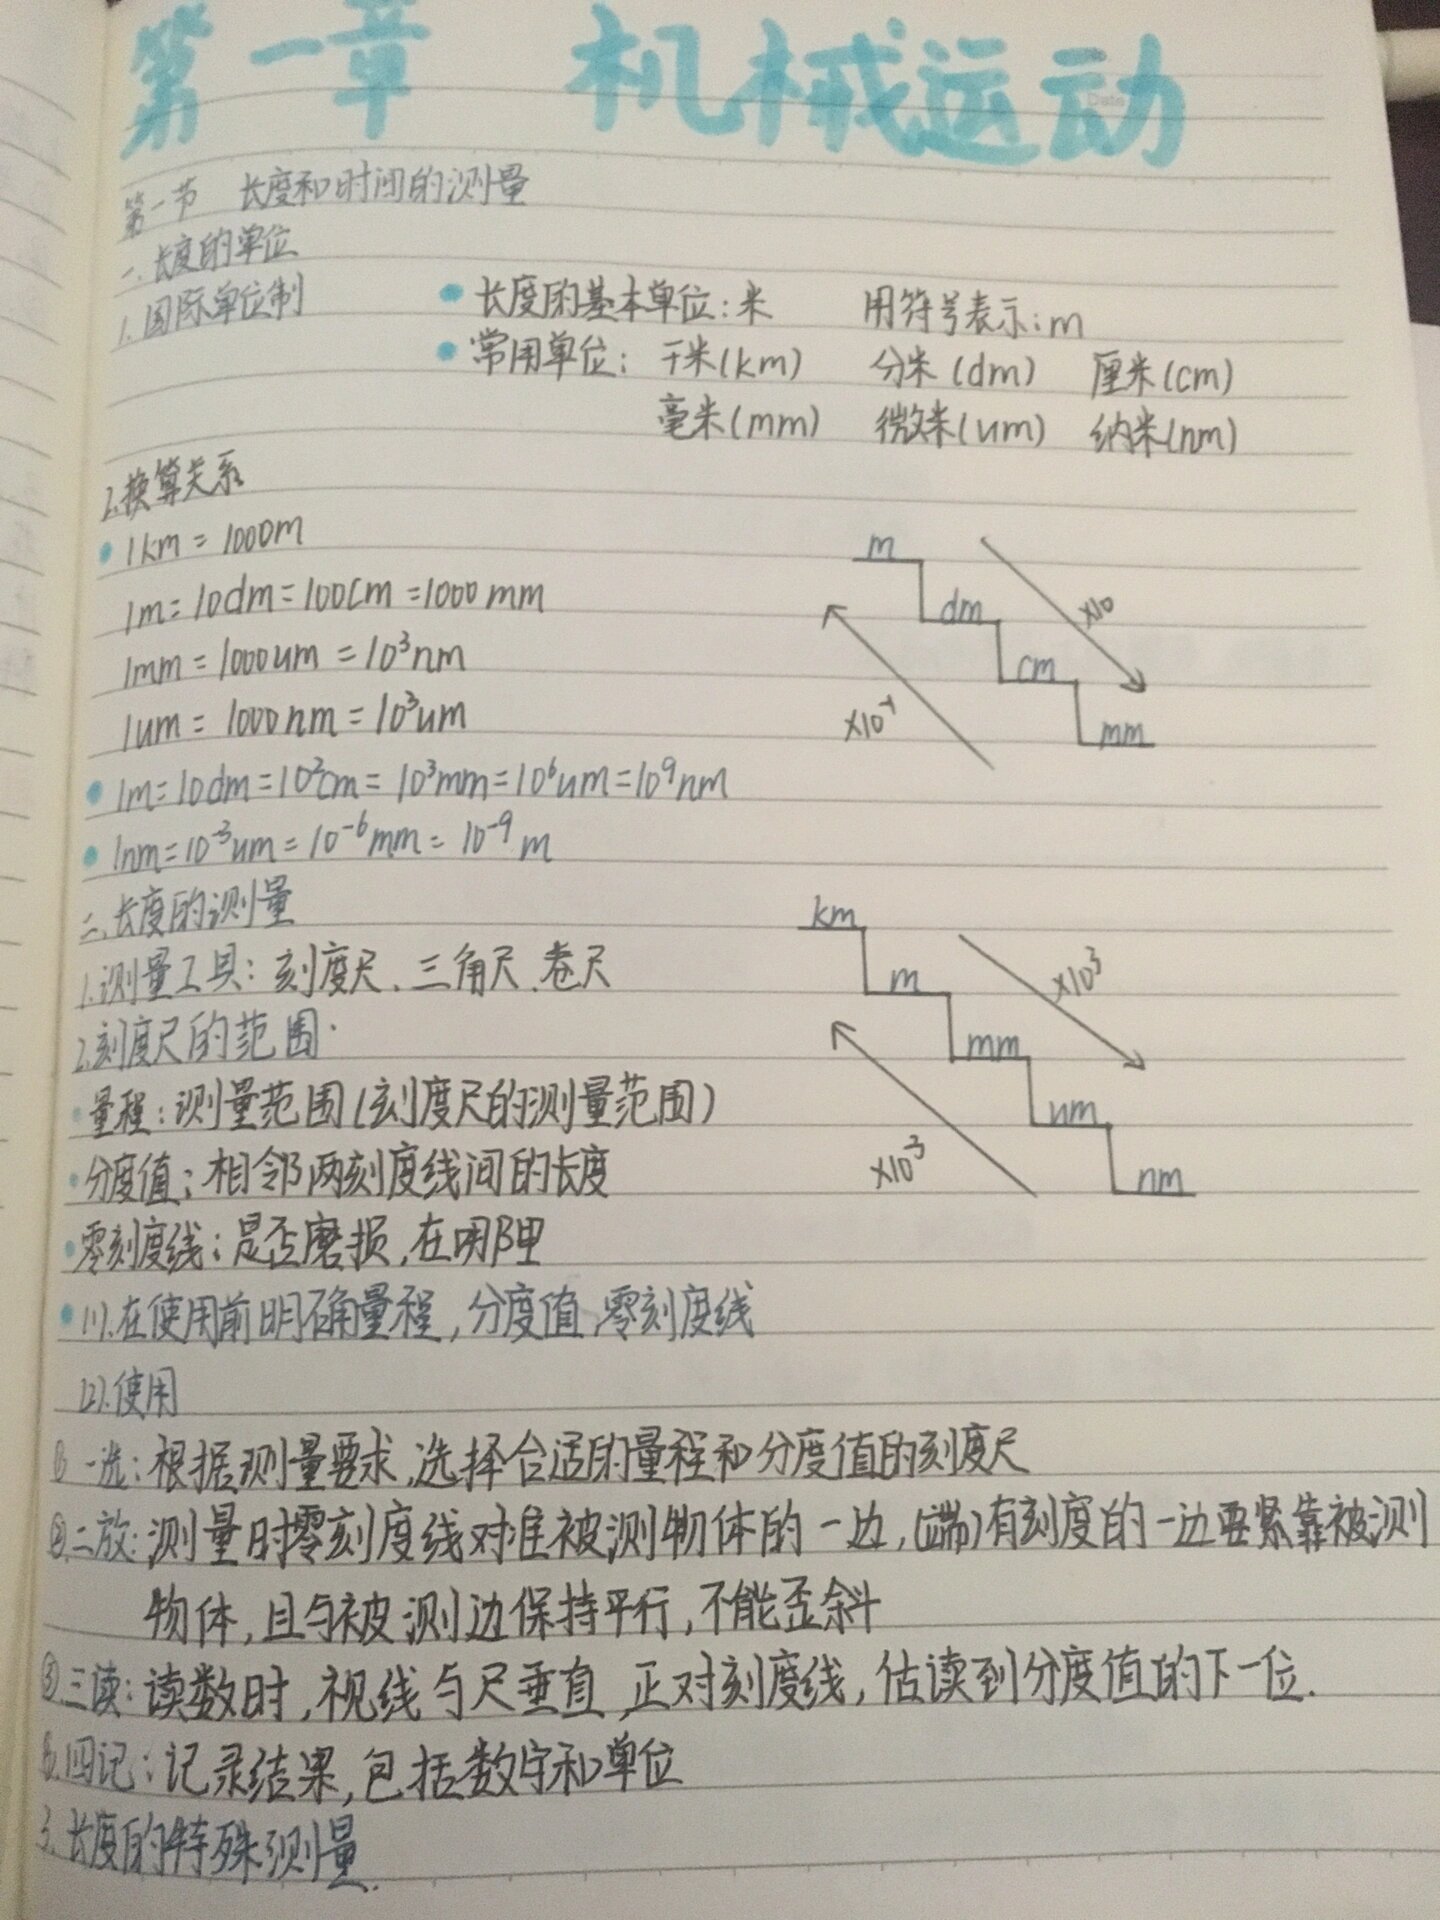 第一章 机械运动
第一节 长度和时间的测量
一.长度的单位
1.国际单位制 长度的基本单位:米 用符号表示:m
常用单位: 千米(km) 分米(dm) 厘米(cm)
毫米(mm) 微米(um) 纳米(nm)
2.换算关系
1km=1000m
1m=10dm=100cm=1000mm
1mm=1000um=10³nm
1um=1000nm=10³um
1m=10dm=10²cm=10³mm=10⁶um=10⁹nm
1nm=10⁻³um=10⁻⁶mm=10⁻⁹m
m
dm
cm
mm
×10
×10⁻¹
二.长度的测量
1.测量工具:刻度尺、三角尺、卷尺
2.刻度尺的范围
量程:测量范围(刻度尺的测量范围)
分度值:相邻两刻度线间的长度
零刻度线:是否磨损,在哪里
(1).在使用前明确量程,分度值,零刻度线
(2).使用
km
m
mm
um
nm
×10³
×10³
① 一选:根据测量要求,选择合适的量程和分度值的刻度尺
②.二放:测量时零刻度线对准被测物体的一边,(端)有刻度的一边要紧靠被测
物体,且与被测边保持平行,不能歪斜
③三读:读数时,视线与尺垂直,正对刻度线,估读到分度值的下一位.
四记:记录结果,包括数字和单位
3.长度的特殊测量.